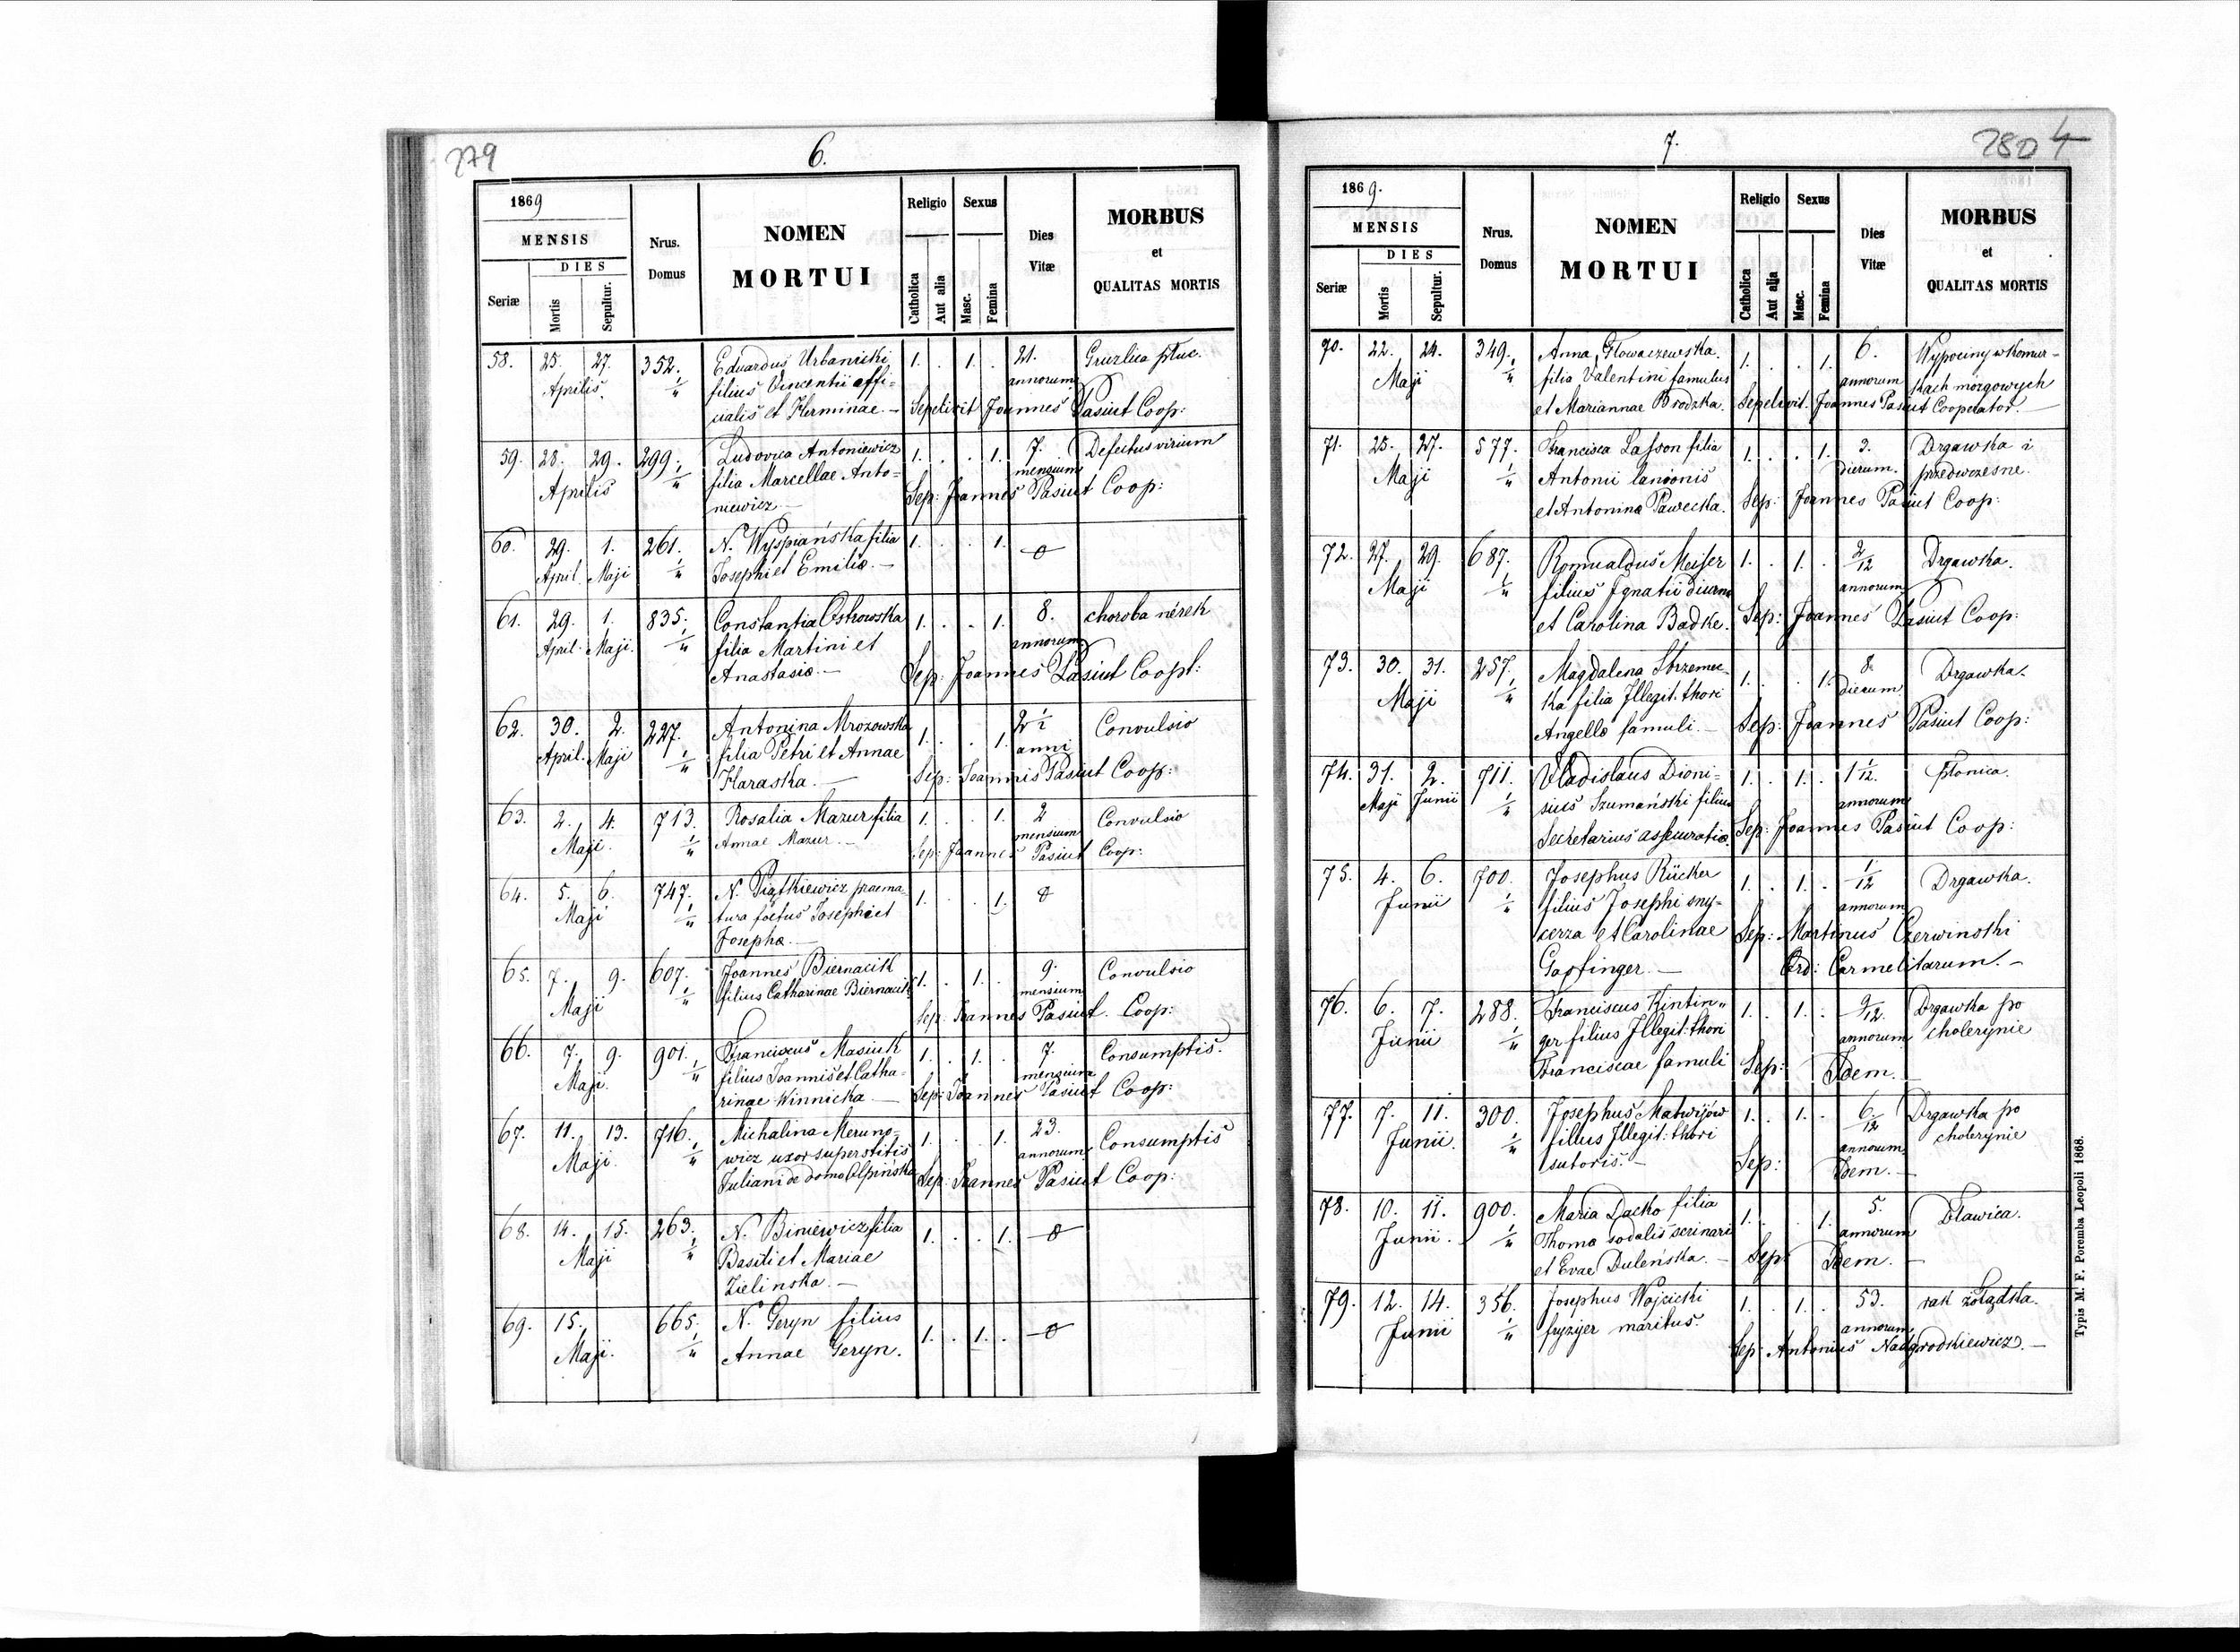 279
6.
1869
MENSIS
DIES
Seriæ
Mortis
Sepultur.
Nrus.
Domus
NOMEN
MORTUI
Religio
Catholica
Aut alia
Sexus
Masc.
Femina
Dies
Vitæ
MORBUS
et
QUALITAS MORTIS
58. 25. 27. 352. Eduardus Urbanicki 1. . 1. . 21. Gruzlica płuc.
Aprilis. filius Vincentii offi= annorum
cialis et Herminae.— Sepelivit Joannes Pasiut Coop:
59. 28. 29. 299. Ludovica Antoniewicz 1. . . 1. 7. Defectus virium
Aprilis filia Marcellae Anto= mensium
niewicz.— Sep: Joannes Pasiut Coop:
60. 29. 1. 261. N. Wyspiańska filia 1. . . 1.
April. Maji Josephi et Emiliæ.—
61. 29. 1. 835. Constantia Ostrowska 1. . . 1. 8. choroba nérek
April. Maji. filia Martini et annorum
Anastasiæ.— Sep: Joannes Pasiut Coop:
62. 30. 2. 227. Antonina Mrozowska 1. . . 1. 2½ Convulsio
April. Maji filia Petri et Annae anni
Haraska.— Sep: Joannis Pasiut Coop:
63. 2. 4. 713. Rosalia Mazur filia 1. . . 1. 2 Convulsio
Maji. Annae Mazur.— mensium
Sep: Joannes Pasiut Coop:
64. 5. 6. 747. N. Piątkiewicz praema- 1. . . 1.
Maji tura foetus Josephi et
Josephæ.—
65. 7. 9. 607. Joannes Biernacik 1. . 1. . 9. Convulsio
Maji filius Catharinae Biernacik mensium
Sep: Joannes Pasiut. Coop:
66. 7. 9. 901. Franciscus Masiuk 1. . 1. . 7. Consumptis.
Maji. filius Joannis et Catha- mensium
rinae Winnicka.— Sep: Joannes Pasiut Coop:
67. 11. 13. 716. Michalina Meruno- 1. . . 1. 23. Consumptis
Maji. wicz uxor superstitis annorum.
Juliani de domo Alpińska Sep: Joannes Pasiut Coop:
68. 14. 15. 263. N. Biniewicz filia 1. . . 1.
Maji Basili et Mariae
Zielinska.—
69. 15. 665. N. Geryn filius 1. . 1. .
Maji. Annae Geryn.
280 4
7.
1869.
MENSIS
DIES
Seriæ
Mortis
Sepultur.
Nrus.
Domus
NOMEN
MORTUI
Religio
Catholica
Aut alja
Sexus
Masc.
Femina
Dies
Vitæ
MORBUS
et
QUALITAS MORTIS
70. 22. 24. 349. Anna Głowaczewska. 1. . . 1. 6. Wypociny w komur-
Maji filia Valentini famulus annorum kach mózgowych
et Mariannae Brodzka. Sepelivit. Joannes Pasiut Cooperator.—
71. 25. 27. 577. Francisca Lasson filia 1. . . 1. 3. Drgawka i
Maji Antonii lanionis dierum. przedwczesne.
et Antonina Pawecka. Sep: Joannes Pasiut Coop:
72. 27. 29. 687. Romualdus Meiser 1. . 1. . 2/12 Drgawka.
Maji filius Ignatii diurn annorum
et Carolina Badke. Sep: Joannes Pasiut Coop:
73. 30. 31. 257. Magdalena Strzemec- 1. . . 1. 8. Drgawka.
Maji ka filia Illegit. thori dierum
Angellæ famuli.— Sep: Joannes Pasiut Coop:
74. 31. 2. 711. Vladislaus Dioni= 1. . 1. . 1 1/12. Płonica.
Maji Junii sius Szumański filius annorum
Secretarius assecuratiæ. Sep: Joannes Pasiut Coop:
75. 4. 6. 700. Josephus Rücker 1. . 1. . 1/12 Drgawka.
Junii filius Josephi sny- annorum
cerza et Carolinae Sep: Martinus Czerwinski
Gasfinger.— Ord: Carmelitarum.—
76. 6. 7. 288. Franciscus Kintin" 1. . 1. . 9/12. Drgawka po
Junii ger filius Illegit: thori annorum cholerynie
Franciscae famuli Sep: Idem.
77. 7. 11. 300. Josephus Matwijów 1. . 1. . 6/12 Drgawka po
Junii. filius Illegit: thori annorum cholerynie
sutoris.— Sep: Idem.—
78. 10. 11. 900. Maria Dacko filia 1. . . 1. 5. Dławica.
Junii. Thomæ sodalis scrinari annorum
et Evae Duleńska.— Sep: Idem.—
79. 12. 14. 356. Josephus Wojcicki 1. . 1. . 53. rak żołądka.
Junii fryzyer maritus. annorum
Sep: Antonius Nadgrodkiewicz.—
Typis M. F. Poremba Leopoli 1868.